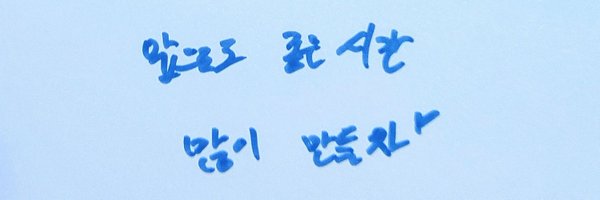 앞으로도 좋은 시간
많이 만들자♥